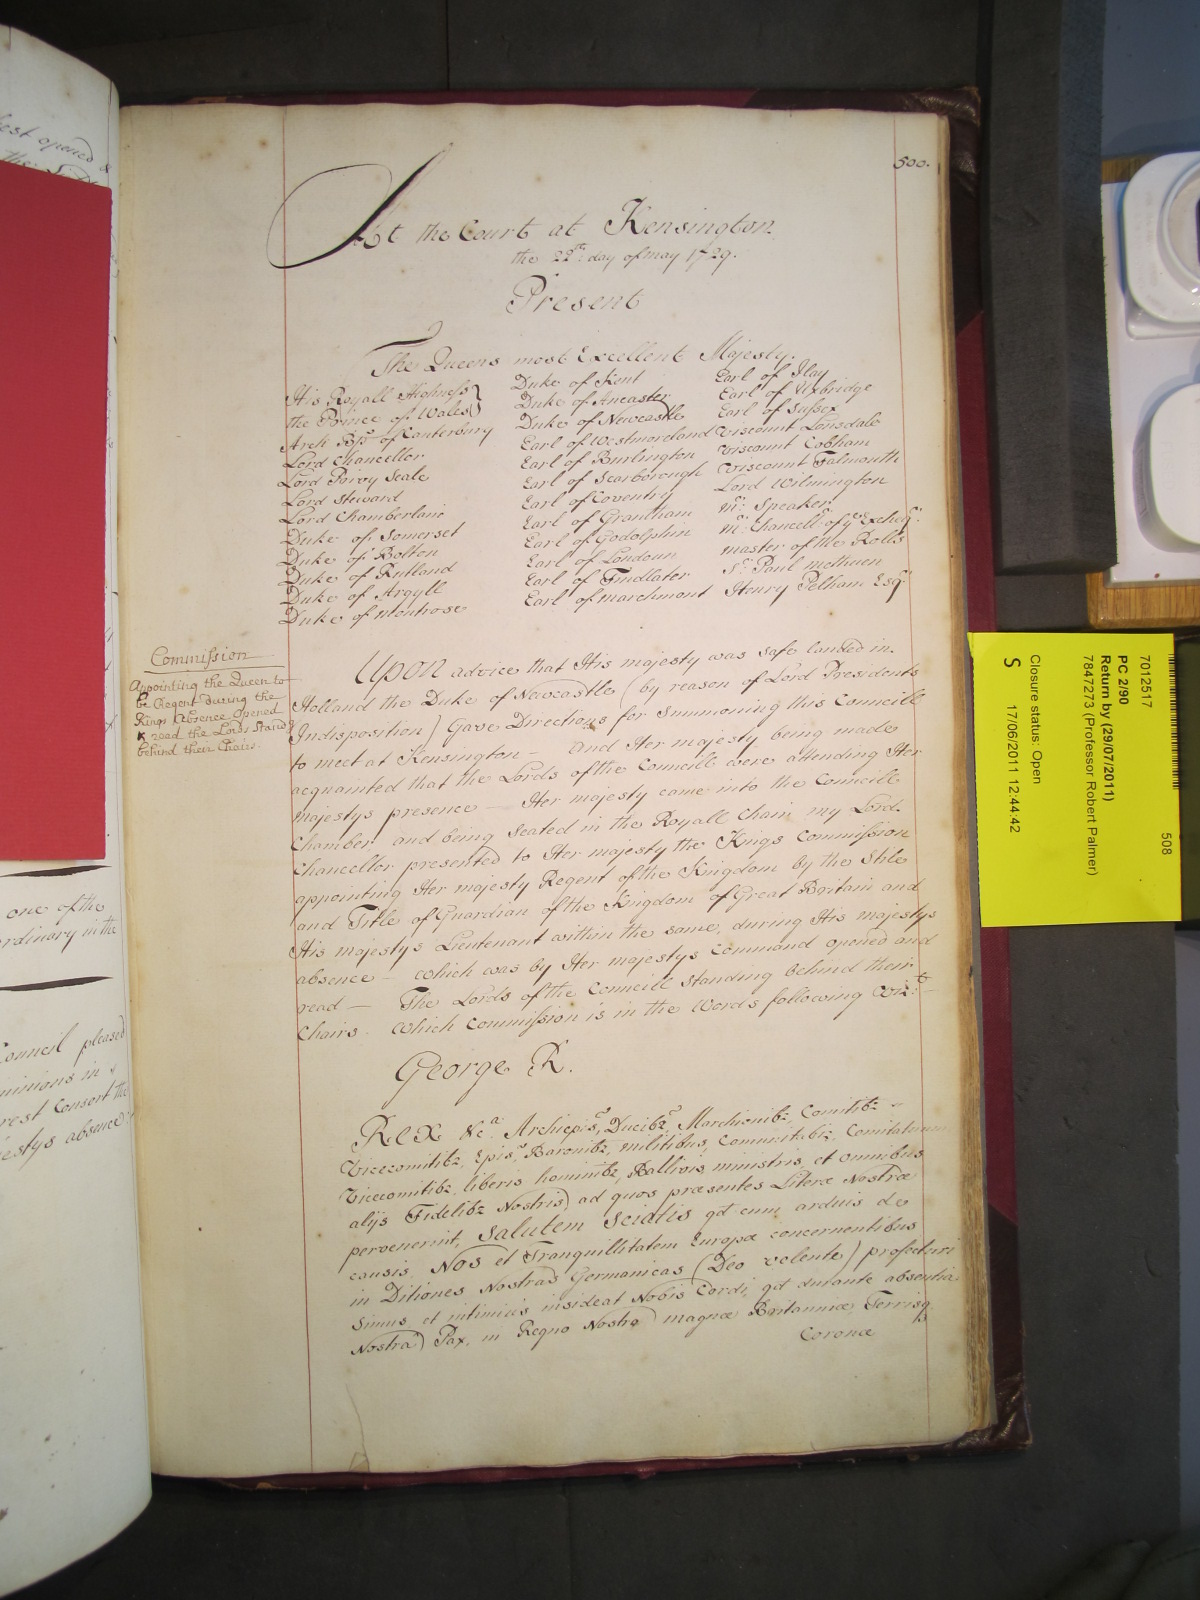 500.
At the Court at Kensington
the 22th. day of may 1729.
Present
The Queens most Excellent Majesty.
His Royall Highness
the Prince of Wales
Arch Bps. of Canterbury
Lord Chancellor
Lord Privy Seale
Lord Steward
Lord Chamberlain
Duke of Somerset
Duke of Bolton
Duke of Rutland
Duke of Argyll
Duke of Montrose
Duke of Kent
Duke of Ancaster
Duke of Newcastle
Earl of Westmoreland
Earl of Burlington
Earl of Scarborough
Earl of Coventry
Earl of Grantham
Earl of Godolphin
Earl of Loudoun
Earl of Findlater
Earl of Marchmont
Earl of Ilay
Earl of Uxbridge
Earl of Sussex
Viscount Lonsdale
Viscount Cobham
Viscount Falmouth
Lord Wilmington
Mr. Speaker
Mr. Chancellr. of ye. Excheqr.
Master of the Rolls
Sr. Paul Methuen
Henry Pelham Esqr.
Commission
Appointing the Queen to
be Regent during the
Kings Absence opened
& read the Lords Stand
behind their Chairs.
Upon advice that His Majesty was safe landed in
Holland the Duke of Newcastle (by reason of Lord Presidents
Indisposition) Gave Directions for Summoning this Councill
to meet at Kensington — And Her Majesty being made
acquainted that the Lords of the Councill were attending Her
Majestys presence — Her Majesty came into the Councill
Chamber and being Seated in the Royall Chair my Lord
Chancellor presented to Her Majesty the Kings Commission
appointing Her Majesty Regent of the Kingdom by the Stile
and Title of Guardian of the Kingdom of Great Britain and
His Majestys Lieutenant within the same, during His Majestys
absence — which was by Her Majestys Command opened and
read — The Lords of the Councill Standing behind their
Chairs. Which Commission is in the Words following vizt. —
George R.
Rex &ca. Archiepis, Ducibz, Marchionibz Comitibz
Vicecomitibz, Epis, Baronibz, militibus, Comitatuum
Vicecomitibz, liberis hominibz, Ballivis, ministris, et omnibus
alijs Fidelibz Nostris ad quos præsentes Literæ Nostræ
pervenerint, Salutem Sciatis qd cum arduis de
causis Nos et Tranquillitatem Europæ concernentibus
in Ditiones Nostras Germanicas (Deo volente) profecturi
Simus et intimius insideat Nobis Cordi, qd durante absentia
Nostra Pax in Regno Nostro magnæ Britanniæ Terrisq
Coronæ
one of the
rdinary in the
ouncil pleased
minions in
rest Consort the
jestys absence
est opened &
7012517
508
PC 2/90
Return by (29/07/2011)
7847273 (Professor Robert Palmer)
Closure status: Open
17/06/2011 12:44:42
S